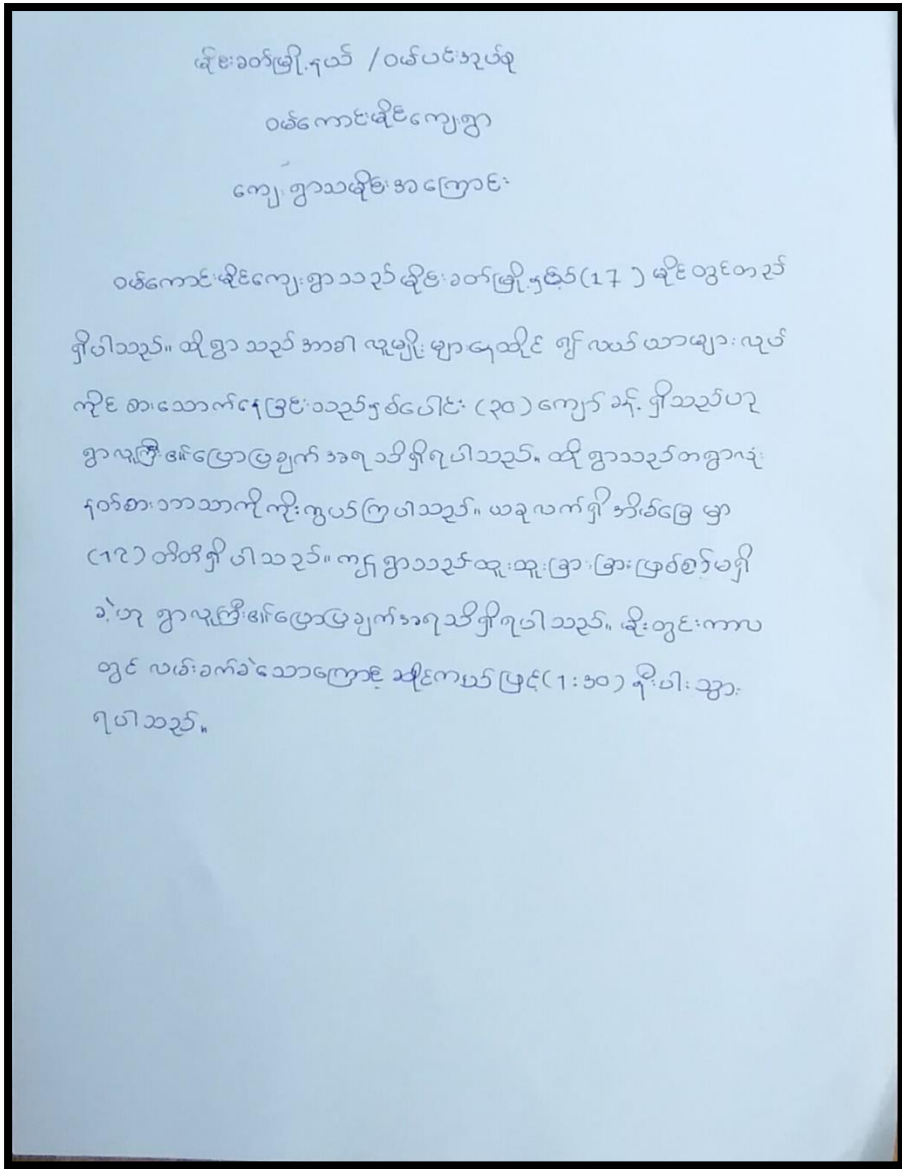 မိုင်းခတ်မြို့နယ် / ဝမ်ပင်းအုပ်စု
ဝမ်ကောင်းမိုင်ကျေးရွာ
ကျေးရွာသမိုင်းအကြောင်း
ဝမ်ကောင်းမိုင်ကျေးရွာသည် မိုင်းခတ်မြို့နှင့် (17) မိုင်တွင်တည်
ရှိပါသည်။ ထိုရွာသည် အာခါ လူမျိုး များနေထိုင် ၍ လယ် ယာများ လုပ်
ကိုင် စားသောက်နေခြင်းသည်နှစ်ပေါင်း (၃၀) ကျော် ခန့် ရှိသည်ဟု
ရွာလူကြီး၏ပြောပြချက် အရ သိရှိရပါသည်။ ထိုရွာသည်တရွာလုံး
နတ်စားဘာသာကိုကိုးကွယ်ကြပါသည်။ ယခုလက်ရှိ အိမ်ခြေ မှာ
(၁၇) တိတိရှိပါသည်။ ဤရွာသည်ထူးထူးခြားခြားဖြစ်စဉ်မရှိ
ခဲ့ဟု ရွာလူကြီး၏ပြောပြချက်အရသိရှိရပါသည်။ မိုးတွင်းကာလ
တွင် လမ်းခက်ခဲသောကြောင့် ဆိုင်ကယ်ဖြင့် (1:30) နီးပါး သွား
ရပါသည်။